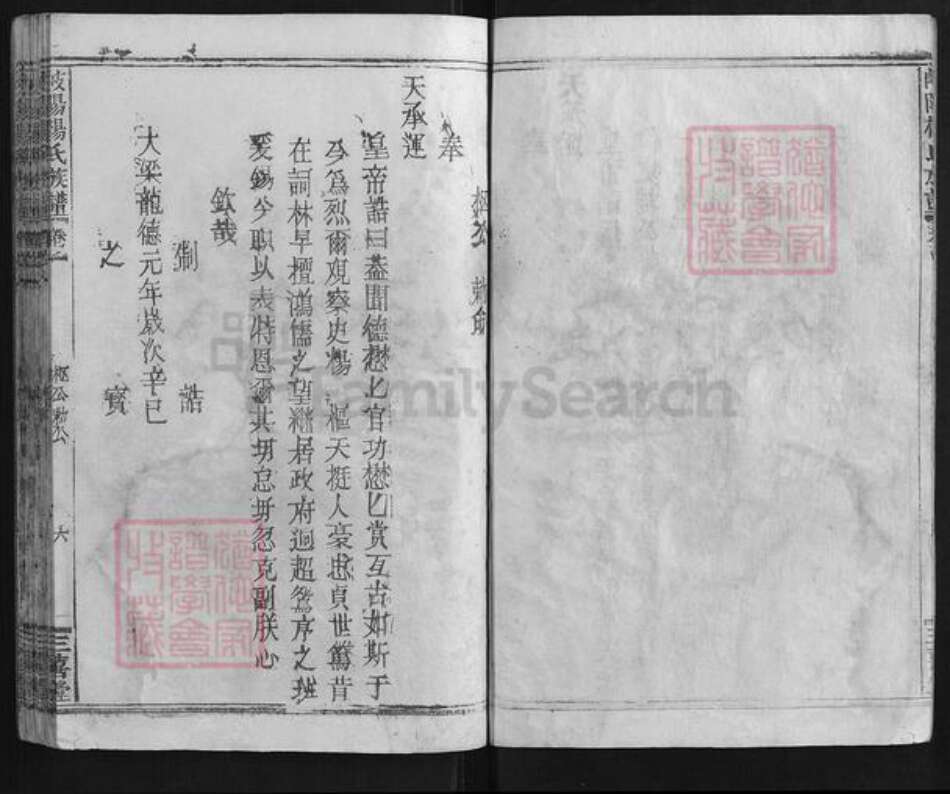 樞公勅命
奉
天承運
皇帝誥曰蓋聞德懋懋官功懋懋賞亙古如斯于
今為烈爾觀察史楊 樞天挺人豪忠貞世篤昔
在詞林早擅鴻儒之望繼居政府迥超鴛序之班
爰錫兮职以表特恩爾其毋怠毋忽克副朕心
欽哉
制 誥
大梁龍德元年歲次辛巳
之 寶
陽楊氏族譜 卷
樞公勅公 六
三喜堂
德伋家譜學會收藏
FamilySearch